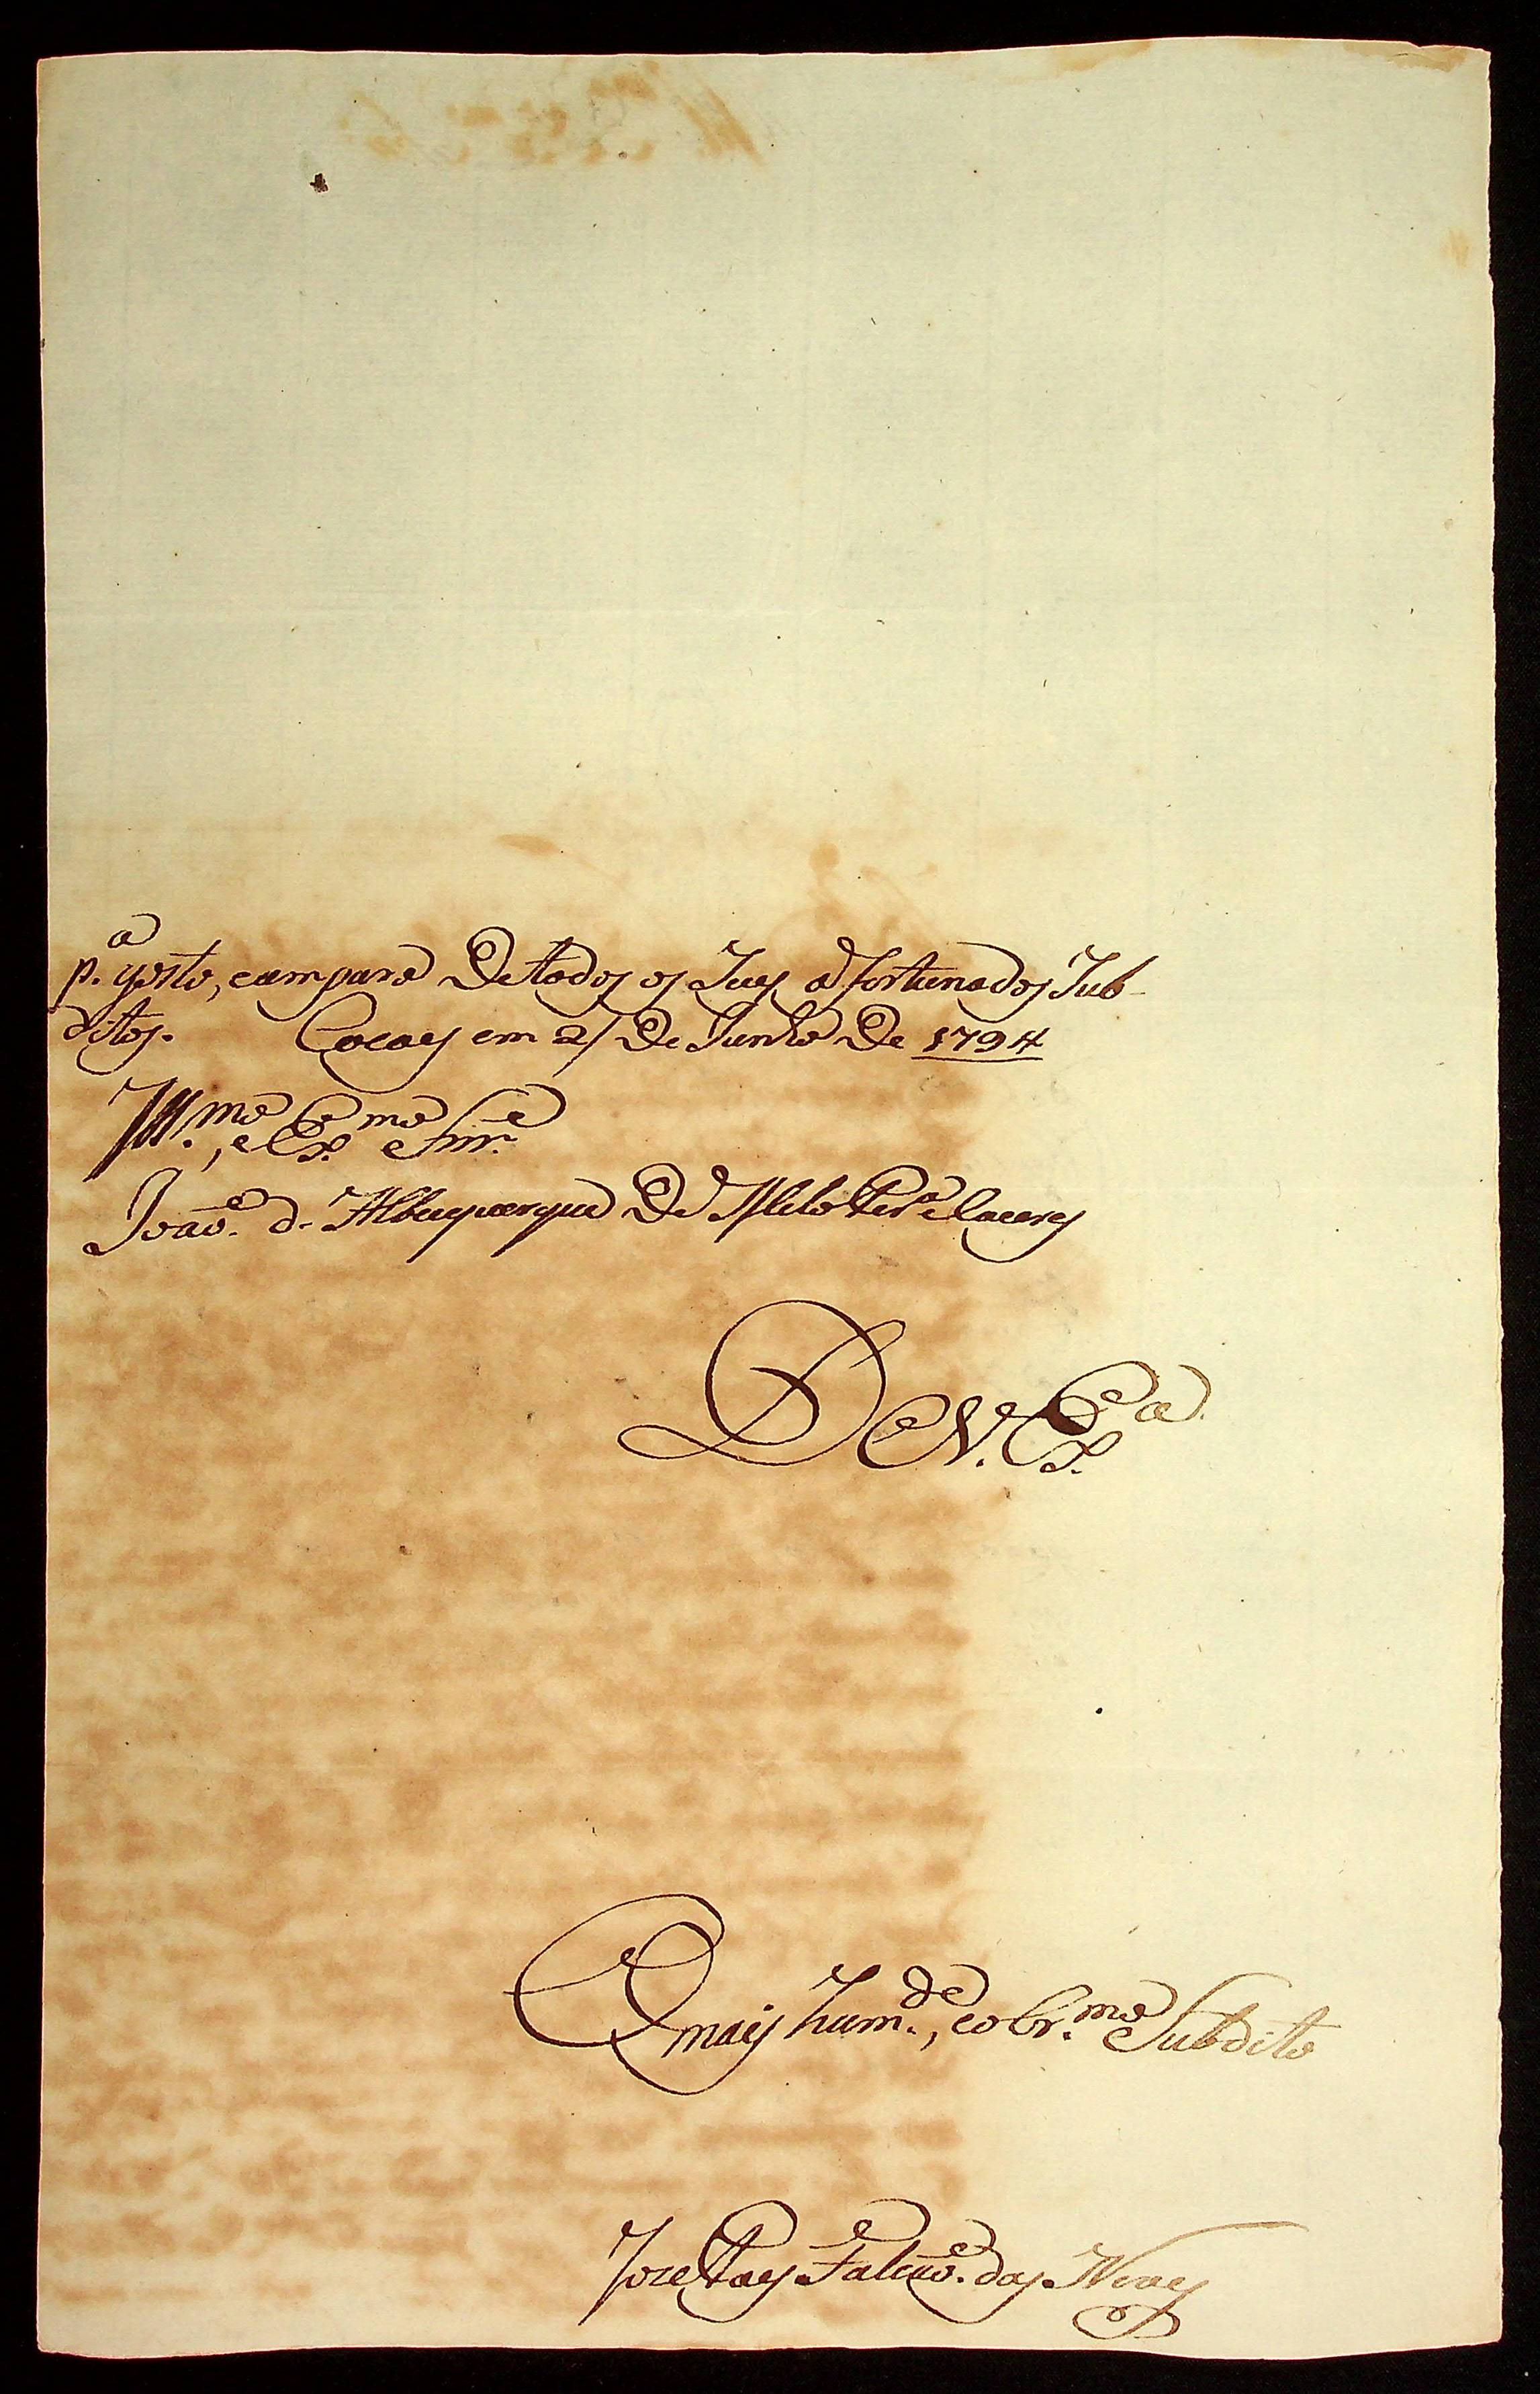 p.ª gosto, e amparo De todos os Seus afortunados Sub-
ditos. Cocaes em 21 De Junho De 1794
Ill.mo, e Ex.mo Snr.
João d'Albuquerque De Mello Per.ª e Caceres
De V. Ex.ª
O mais hum.de, e obr.mo Subdito
Joze Paes Falcão das Neves